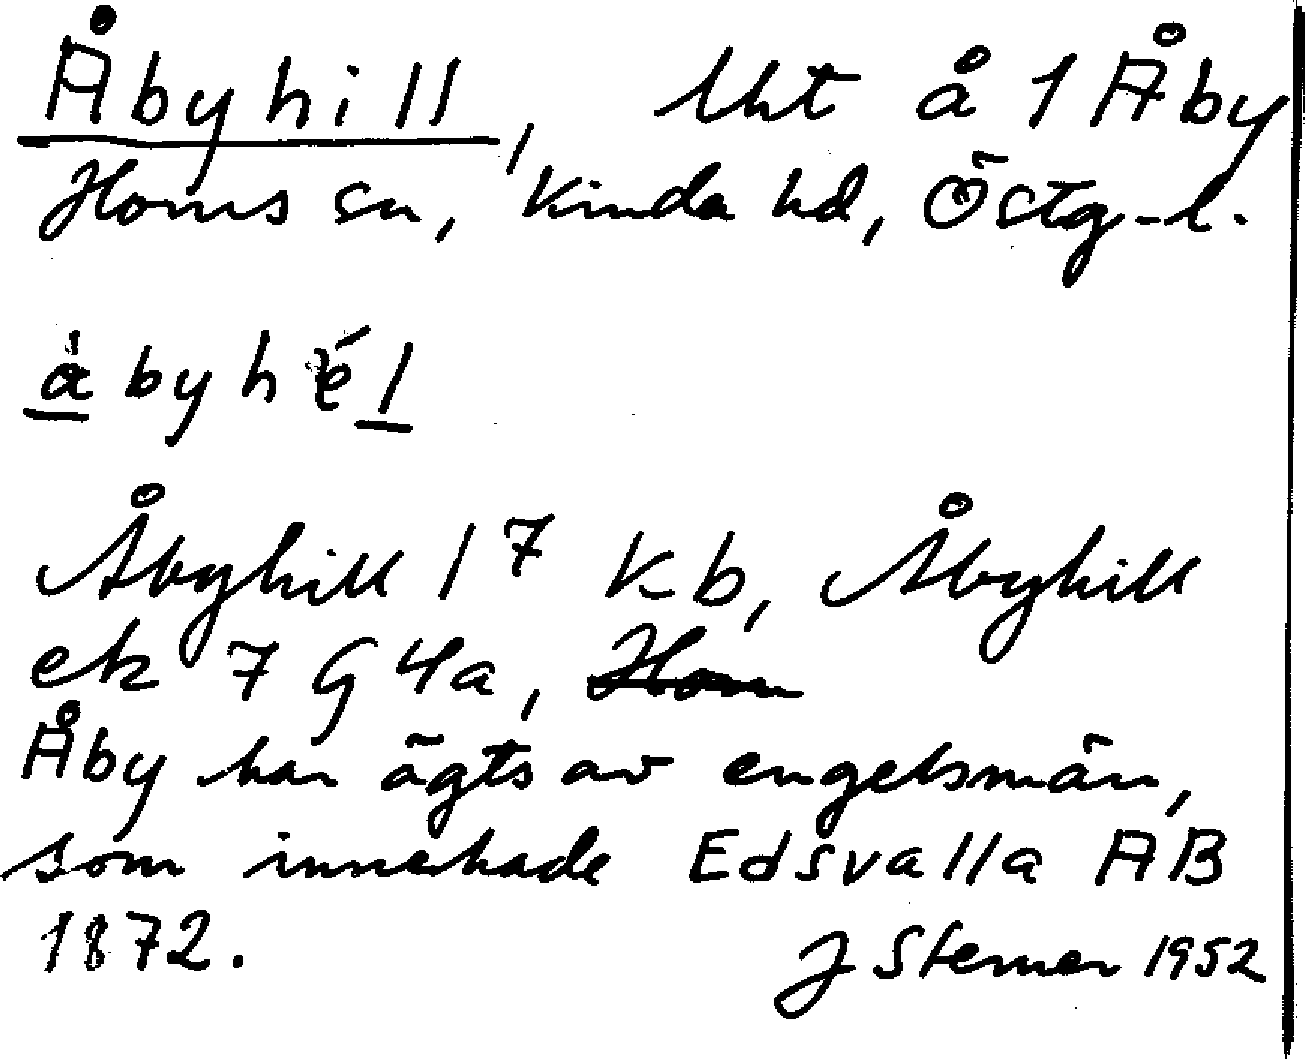 Åbyhill, Uht å 1 Åby
Horns sn, Kinda hd, Östg-l.
åbyhél
Åbyhill 1⁷ Kb, Åbyhill
ek 7 G 4a, Horn
Åby har ägts av engelsmän,
som innehade Edsvalla AB
1872.
J Sterner 1952